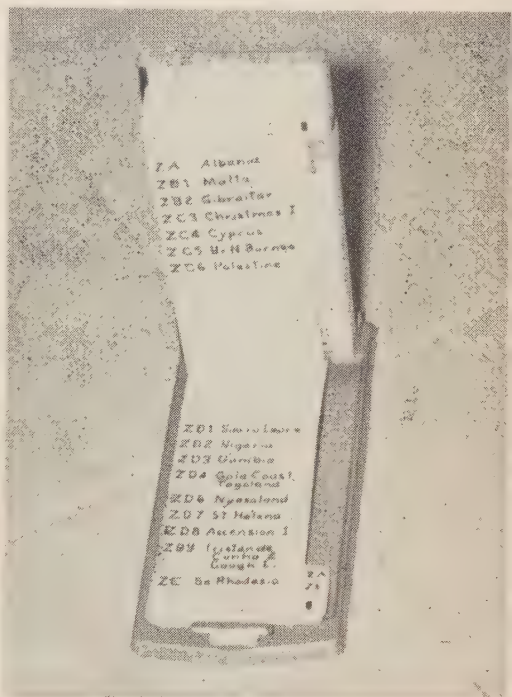 ZA Albania
ZB1 Malta
ZB2 Gibraltar
ZC3 Christmas I
ZC4 Cyprus
ZC5 Br N Borneo
ZC6 Palestine
ZD1 Sierra Leone
ZD2 Nigeria
ZD3 Gambia
ZD4 Gold Coast
Togoland
ZD6 Nyasaland
ZD7 St Helena
ZD8 Ascension I
ZD9 Tristan da
Cunha &
Gough I.
ZE So Rhodesia
ZA